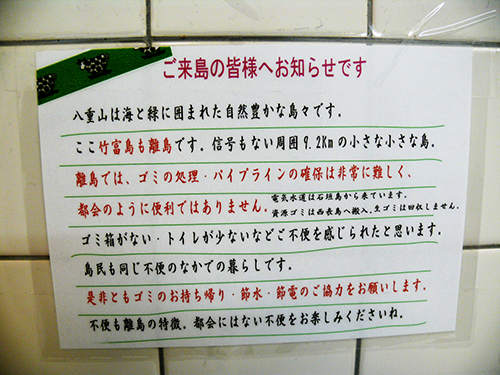 ご来島の皆様へお知らせです
八重山は海と緑に囲まれた自然豊かな島々です.
ここ竹富島も離島です.信号もない周囲9.2Kmの小さな小さな島.
離島では、ゴミの処理・パイプラインの確保は非常に難しく、
都会のように便利ではありません.
電気水道は石垣島から来ています.
資源ゴミは西表島へ搬入、生ゴミは回収しません.
ゴミ箱がない・トイレが少ないなどご不便を感じられたと思います.
島民も同じ不便のなかでの暮らしです.
是非ともゴミのお持ち帰り・節水・節電のご協力をお願いします.
不便も離島の特徴.都会にはない不便をお楽しみくださいね.